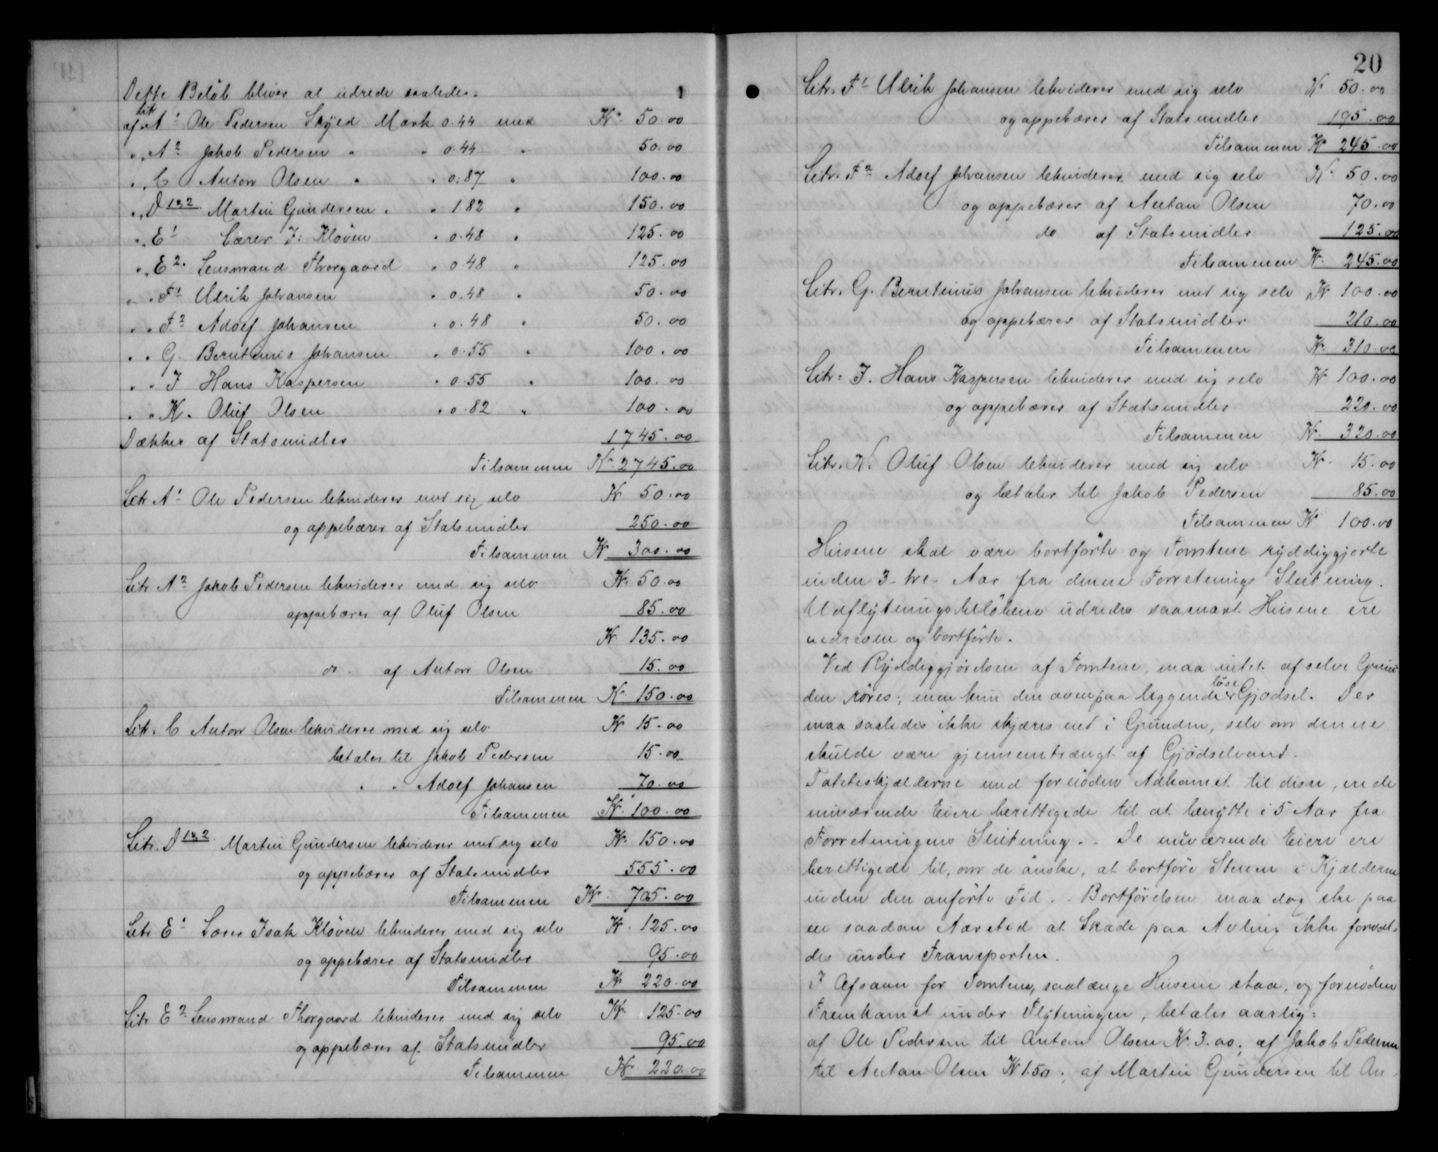 Dette Beløb bliver at udrede saaledes:
af Litr A¹ Ole Pedersen Skyld Mark 0.44 med Kr. 50.00
" " A² Jakob Pedersen " " 0.44 " 50.00
" " C Anton Olsen " " 0.87 " 100.00
" " D 1&2 Martin Gundersen " " 1.82 " 150.00
" " E¹ Lærer I. Kløven " 0.48 " 125.00
" " E² Lensmand Thorgaard " 0.48 " 125.00
" " F¹ Ulrik Johansen " 0.48 " 50.00
" " F² Adolf Johansen " 0.48 " 50.00
" " G. Berntinus Johansen " 0.55 " 100.00
" " I Hans Kaspersen " 0.55 " 100.00
" " K. Oluf Olsen " 0.82 " 100.00
Dækkes af Statsmidler 1745.00
Tilsammen Kr 2745.00
Litr A¹ Ole Pedersen likviderer med sig selv Kr 50.00
og oppebærer af Statsmidler 250.00
Tilsammen Kr 300.00
Litr A² Jakob Pedersen likviderer med sig selv Kr. 50.00
oppebærer af Oluf Olsen 85.00
Kr 135.00
do. af Anton Olsen 15.00
Tilsammen Kr 150.00
Litr. C Anton Olsen likviderer med sig selv Kr 15.00
betaler til Jakob Pedersen 15.00
" " Adolf Johansen 70.00
Tilsammen Kr 100.00
Litr. D 1&2 Martin Gundersen likviderer med sig selv Kr. 150.00
og oppebærer af Statsmidler 555.00
Tilsammen Kr 705.00
Litr E¹ Lærer Isak Kløven likviderer med sig selv Kr 125.00
og oppebærer af Statsmidler 95.00
Tilsammen Kr 220.00
Litr E² Lensmand Thorgaard likviderer med sig selv Kr 125.00
og oppebærer af Statsmidler 95.00
Tilsammen Kr 220.00
20
Litr. F¹ Ulrik Johansen likviderer med sig selv Kr 50.00
og oppebærer af Statsmidler 195.00
Tilsammen Kr 245.00
Litr. F² Adolf Johansen likviderer med sig selv Kr 50.00
og oppebærer af Anton Olsen 70.00
do af Statsmidler 125.00
Tilsammen Kr. 245.00
Litr. G. Berntinus Johansen likviderer med sig selv Kr 100.00
og oppebærer af Statsmidler 210.00
Tilsammen Kr. 310.00
Litr. I. Hans Kaspersen likviderer med sig selv Kr 100.00
og oppebærer af Statsmidler 220.00
Tilsammen Kr. 320.00
Litr. K. Oluf Olsen likviderer med sig selv Kr. 15.00
og betaler til Jakob Pedersen 85.00
Tilsammen Kr 100.00
Husene skal være bortførte og Tomtene ryddiggjorte
inden 3 - tre - Aar fra denne Forretnings Slutning.
Udflytningsbeløbene udredes saasnart Husene ere
nedrevne og bortførte.
Ved Ryddiggjørelsen af Tomtene, maa intet af selve Grun-
den røres; men kun den ovenpaa liggende løse Gjødsel. Der
maa saaledes ikke skjæres ned i Grunden, selv om denne
skulde være gjennemtrængt af Gjødselvand.
Potetteskjælderne med fornøden Adkomst til disse, er de
nuværende Eiere berettigede til at benytte i 5 Aar fra
Forretningens Slutning. - De nuværende Eiere ere
berettigede til, om de ønske, at bortføre Stenen i Kjælderne
inden den anførte Tid. - Bortførelsen maa dog ske paa
en saadan Aarstid at Skade paa Avling ikke forvol-
des under Transporten.
I Afsavn for Tomtene, saalænge Husene staa, og fornøden
Fremkomst under Flytningen, betales aarlig:
af Ole Pedersen til Anton Olsen Kr 3.00; af Jakob Pedersen
til Anton Olsen Kr 1.50; af Martin Gundersen til An-